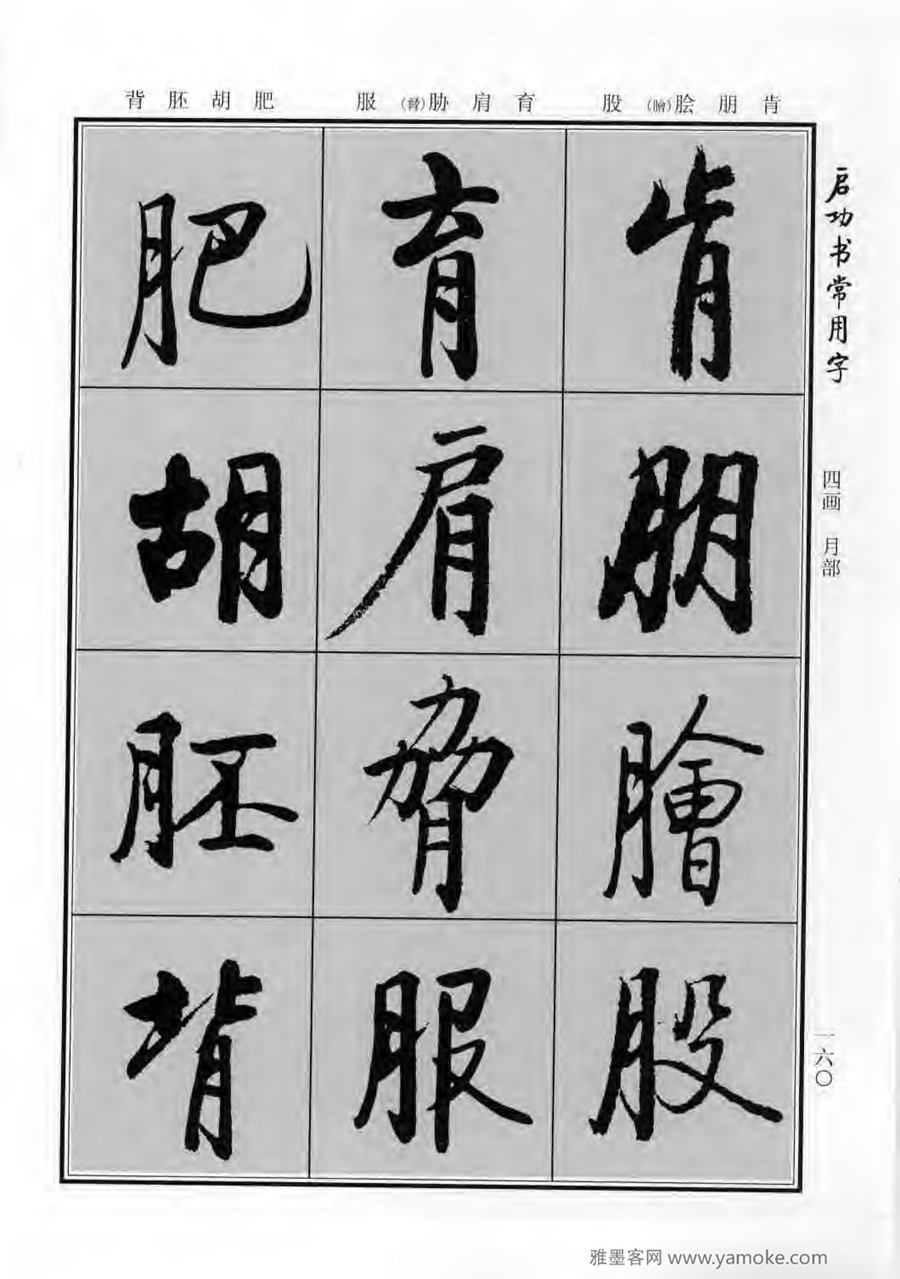 肯朋脍(膾)股
育肩胁(脅)服
肥胡胚背
启功书常用字
四画 月部
一六〇
肯朋膾股
育肩脅服
肥胡胚背
雅墨客网 www.yamoke.com